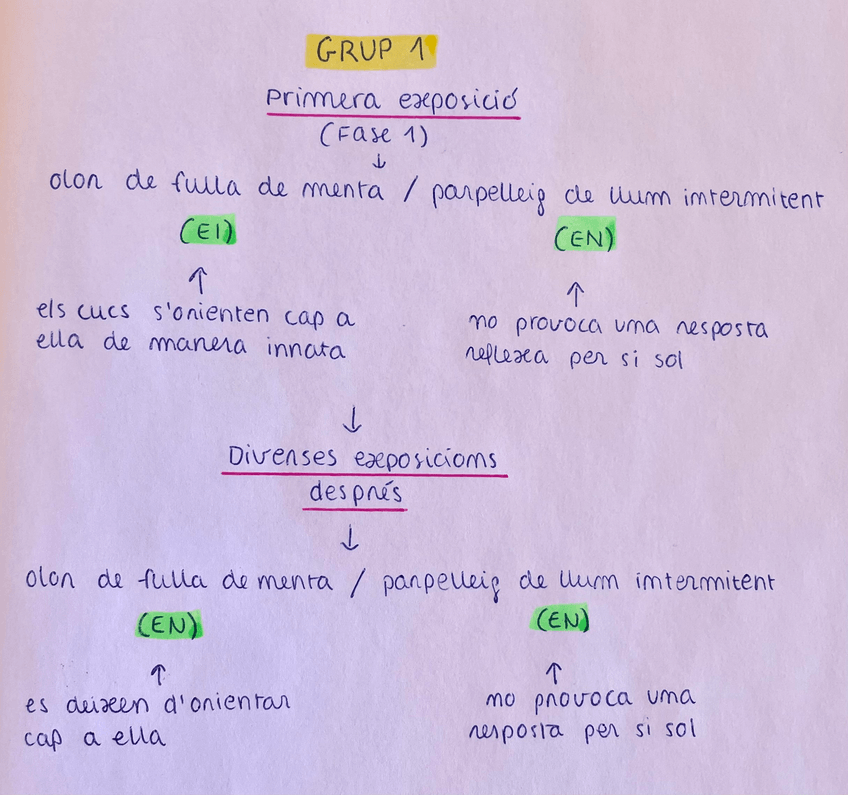 GRUP 1
Primera exposició
(Fase 1)
↓
olor de fulla de menta / parpelleig de llum intermitent
(EI) (EN)
↑ ↑
els cucs s'orienten cap a
ella de manera innata
no provoca una resposta
reflexa per si sol
↓
Diverses exposicions
després
↓
olor de fulla de menta / parpelleig de llum intermitent
(EN) (EN)
↑ ↑
es deixen d'orientar
cap a ella
no provoca una
resposta per si sol